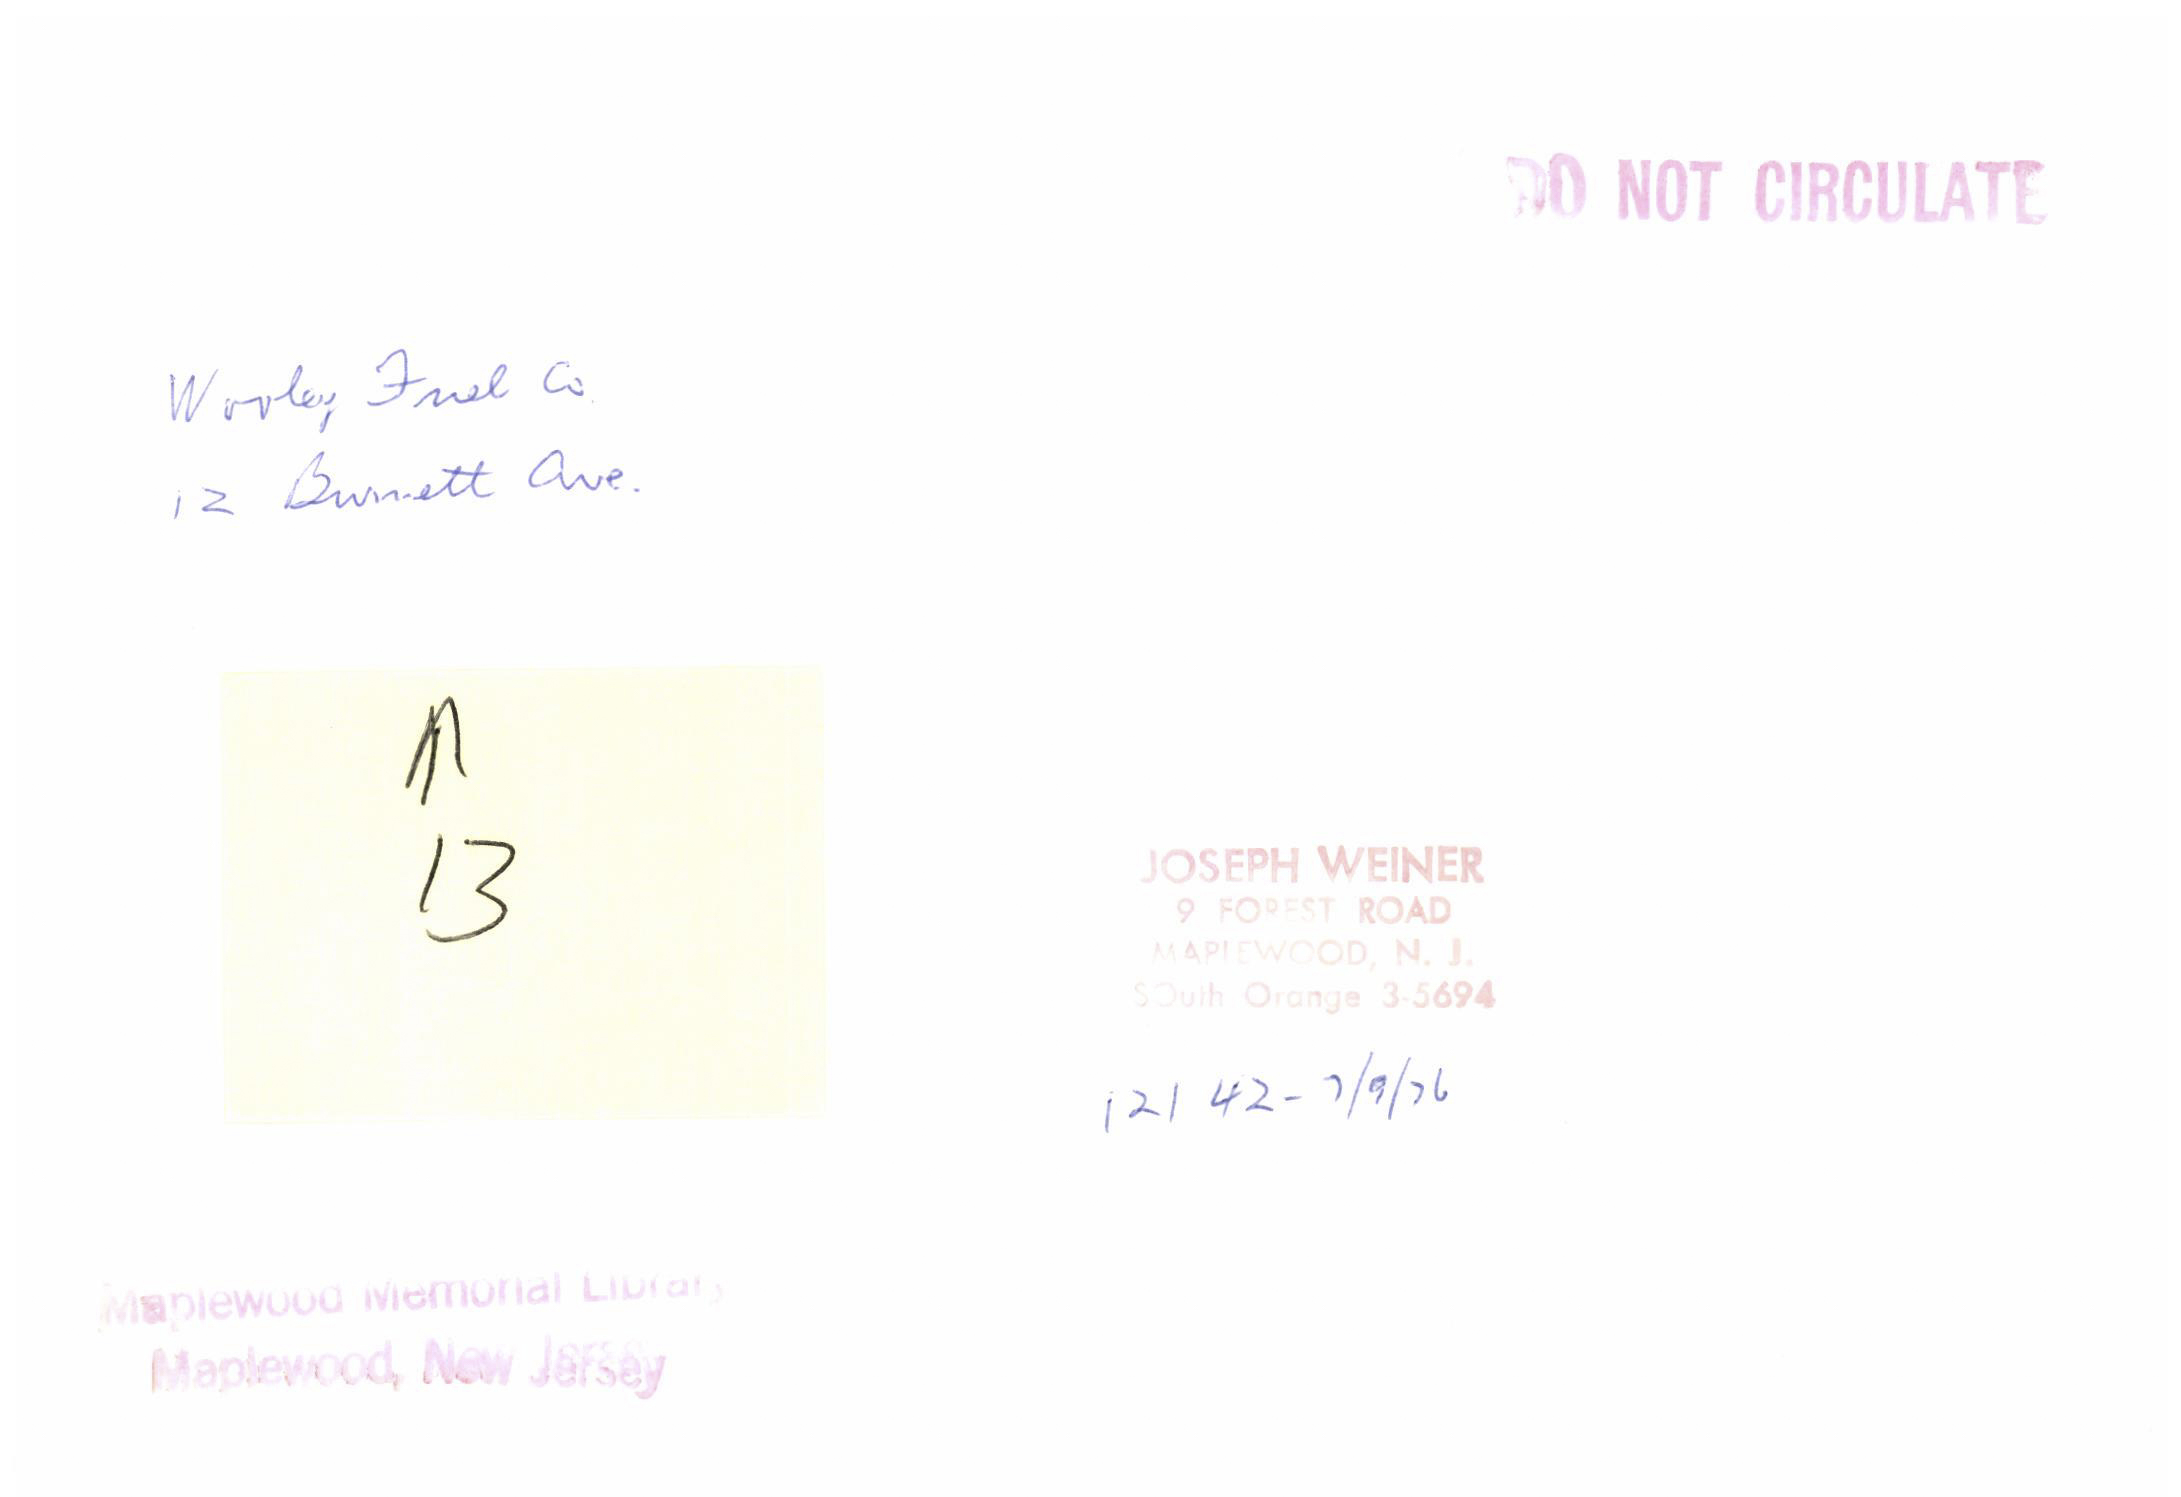 DO NOT CIRCULATE
Wooley Fuel Co.
12 Burnett Ave.
↑
13
JOSEPH WEINER
9 FOREST ROAD
MAPLEWOOD, N. J.
SOuth Orange 3-5694
12142-7/9/76
Maplewood Memorial Library
Maplewood, New Jersey